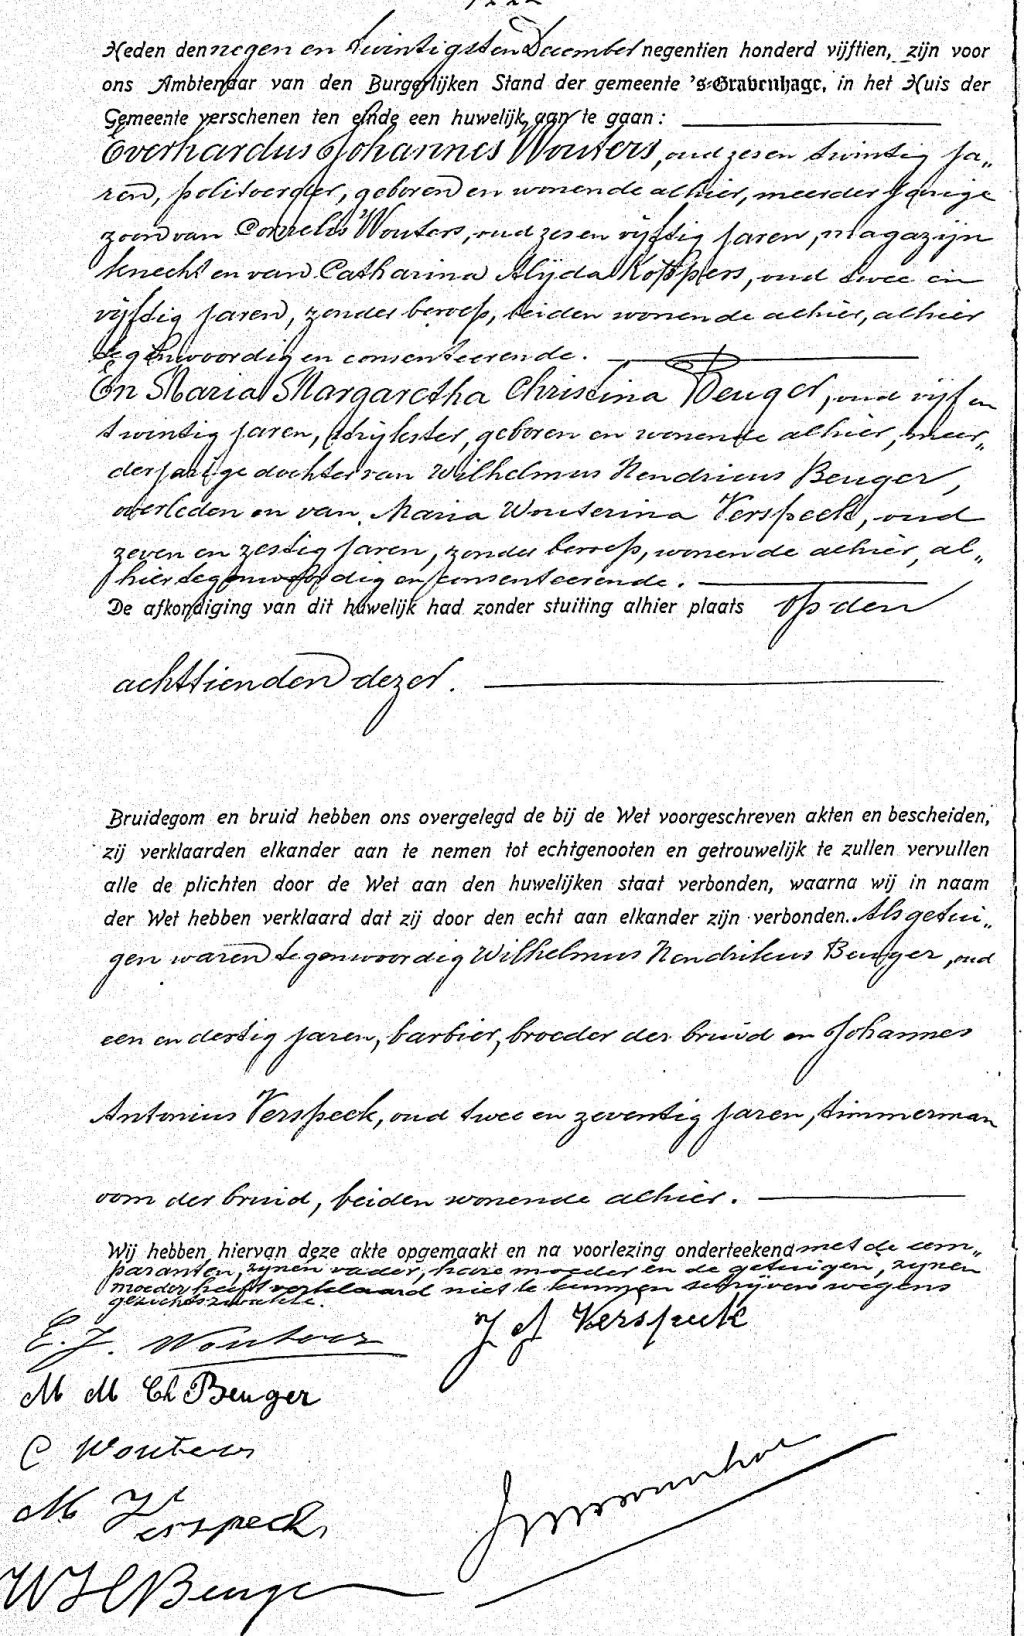 Heden den negen en twintigsten December negentien honderd vijftien, zijn voor
ons Ambtenaar van den Burgerlijken Stand der gemeente 's-Gravenhage, in het Huis der
Gemeente verschenen ten einde een huwelijk aan te gaan:
Everhardus Johannes Wouters, oud zes en twintig ja„
ren, politoerder, geboren en wonende alhier, meerderjarige
zoon van Cornelis Wouters, oud zes en vijftig jaren, magazijn
knecht en van Catharina Alijda Koppers, oud twee en
vijftig jaren, zonder beroep, beiden wonende alhier, alhier
tegenwoordig en consenteerende.
En Maria Margaretha Christina Beuger, oud vijf en
twintig jaren, strijkster, geboren en wonende alhier, meer„
derjarige dochter van Wilhelmus Hendricus Beuger,
overleden en van Maria Wouterina Verspeek, oud
zeven en zestig jaren, zonder beroep, wonende alhier, al„
hier tegenwoordig en consenteerende.
De afkondiging van dit huwelijk had zonder stuiting alhier plaats op den
achttienden dezer.
Bruidegom en bruid hebben ons overgelegd de bij de Wet voorgeschreven akten en bescheiden,
zij verklaarden elkander aan te nemen tot echtgenooten en getrouwelijk te zullen vervullen
alle de plichten door de Wet aan den huwelijken staat verbonden, waarna wij in naam
der Wet hebben verklaard dat zij door den echt aan elkander zijn verbonden. Als getui„
gen waren tegenwoordig Wilhelmus Hendrikus Beuger, oud
een en dertig jaren, barbier, broeder der bruid en Johannes
Antonius Verspeek, oud twee en zeventig jaren, timmerman
oom der bruid, beiden wonende alhier.
Wij hebben hiervan deze akte opgemaakt en na voorlezing onderteekend met de com„
paranten, zijnen vader, hare moeder en de getuigen, zijnen
moeder heeft verklaard niet te kunnen schrijven wegens
gezichtszwakte.
E. J. Wouters
J A Verspeek
M M Ch Beuger
C Wouters
M Verspeek
W H Beuger